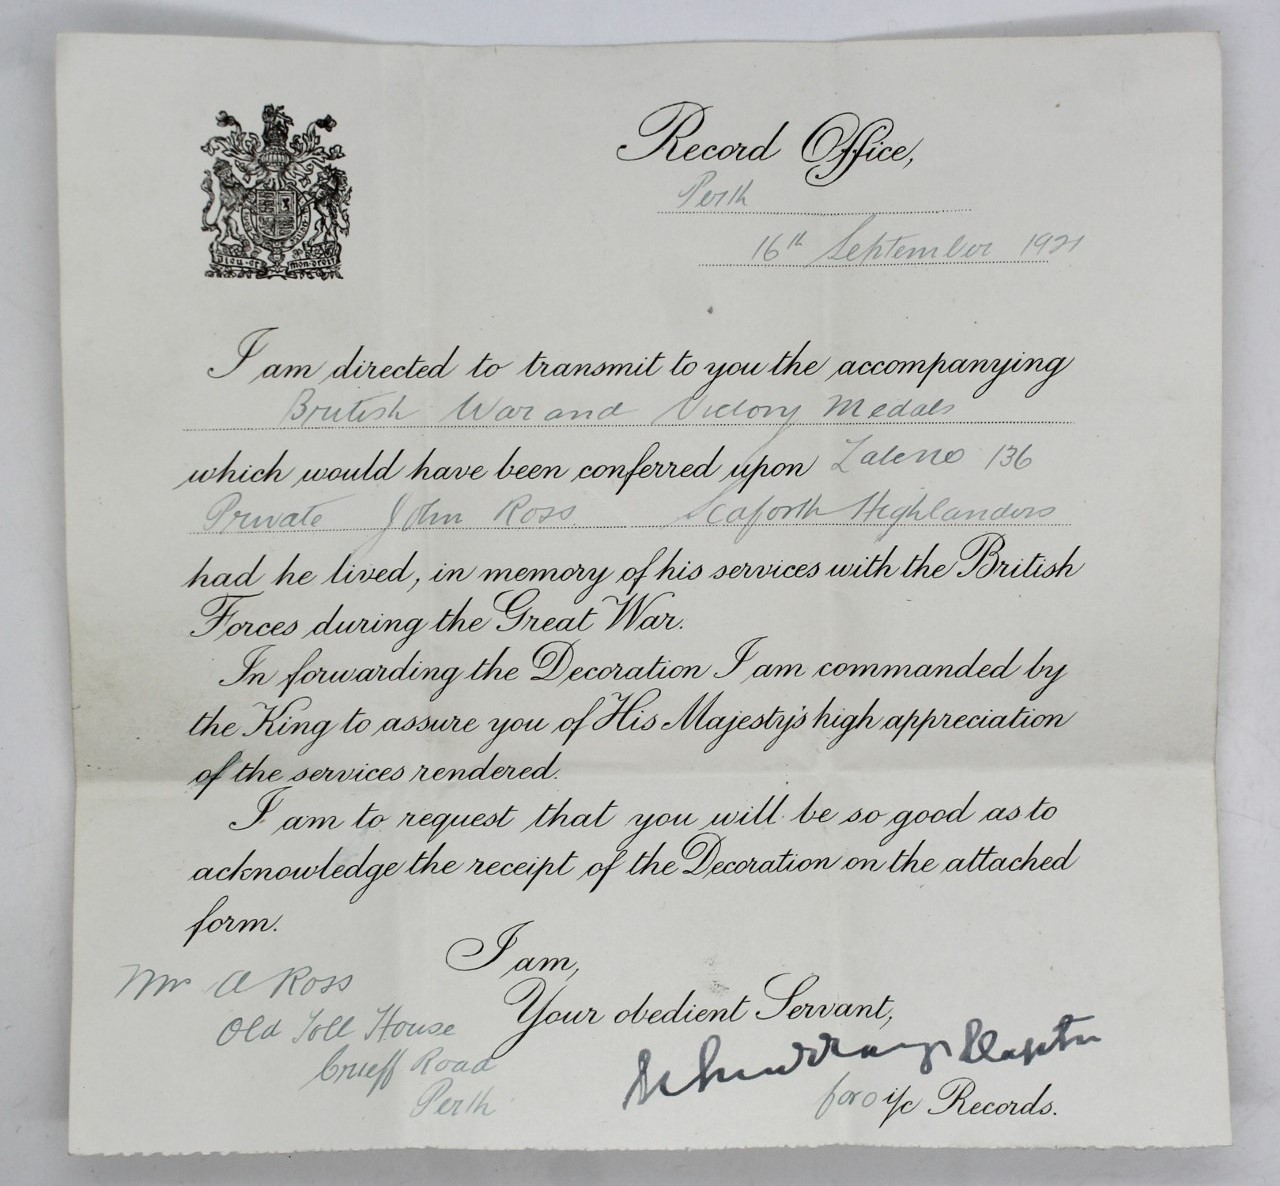 Dieu et mon droit
Record Office,
Perth
16th September 1921
I am directed to transmit to you the accompanying
British War and Victory Medals
which would have been conferred upon Late No 136
Private John Ross Seaforth Highlanders
had he lived, in memory of his services with the British
Forces during the Great War.
In forwarding the Decoration I am commanded by
the King to assure you of His Majesty's high appreciation
of the services rendered.
I am to request that you will be so good as to
acknowledge the receipt of the Decoration on the attached
form.
I am,
Your obedient Servant,
for o i/c Records.
Mr A Ross
Old Toll House
Crieff Road
Perth